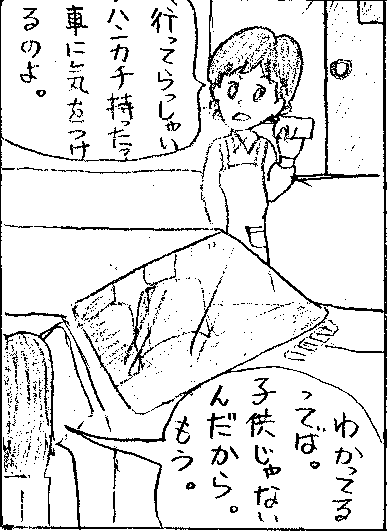 行ってらっしゃい
ハンカチ持った?
車に気をつけ
るのよ。
わかってる
ってば。
子供じゃない
んだから。
もう。